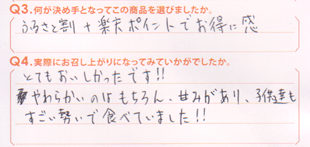 Q3.何が決め手となってこの商品を選びましたか。
ふるさと割+楽天ポイントでお得に感
Q4.実際にお召し上がりになってみていかがでしたか。
とてもおいしかったです!!
やわらかいのはもちろん、甘みがあり、子供達も
すごい勢いで食べていました!!